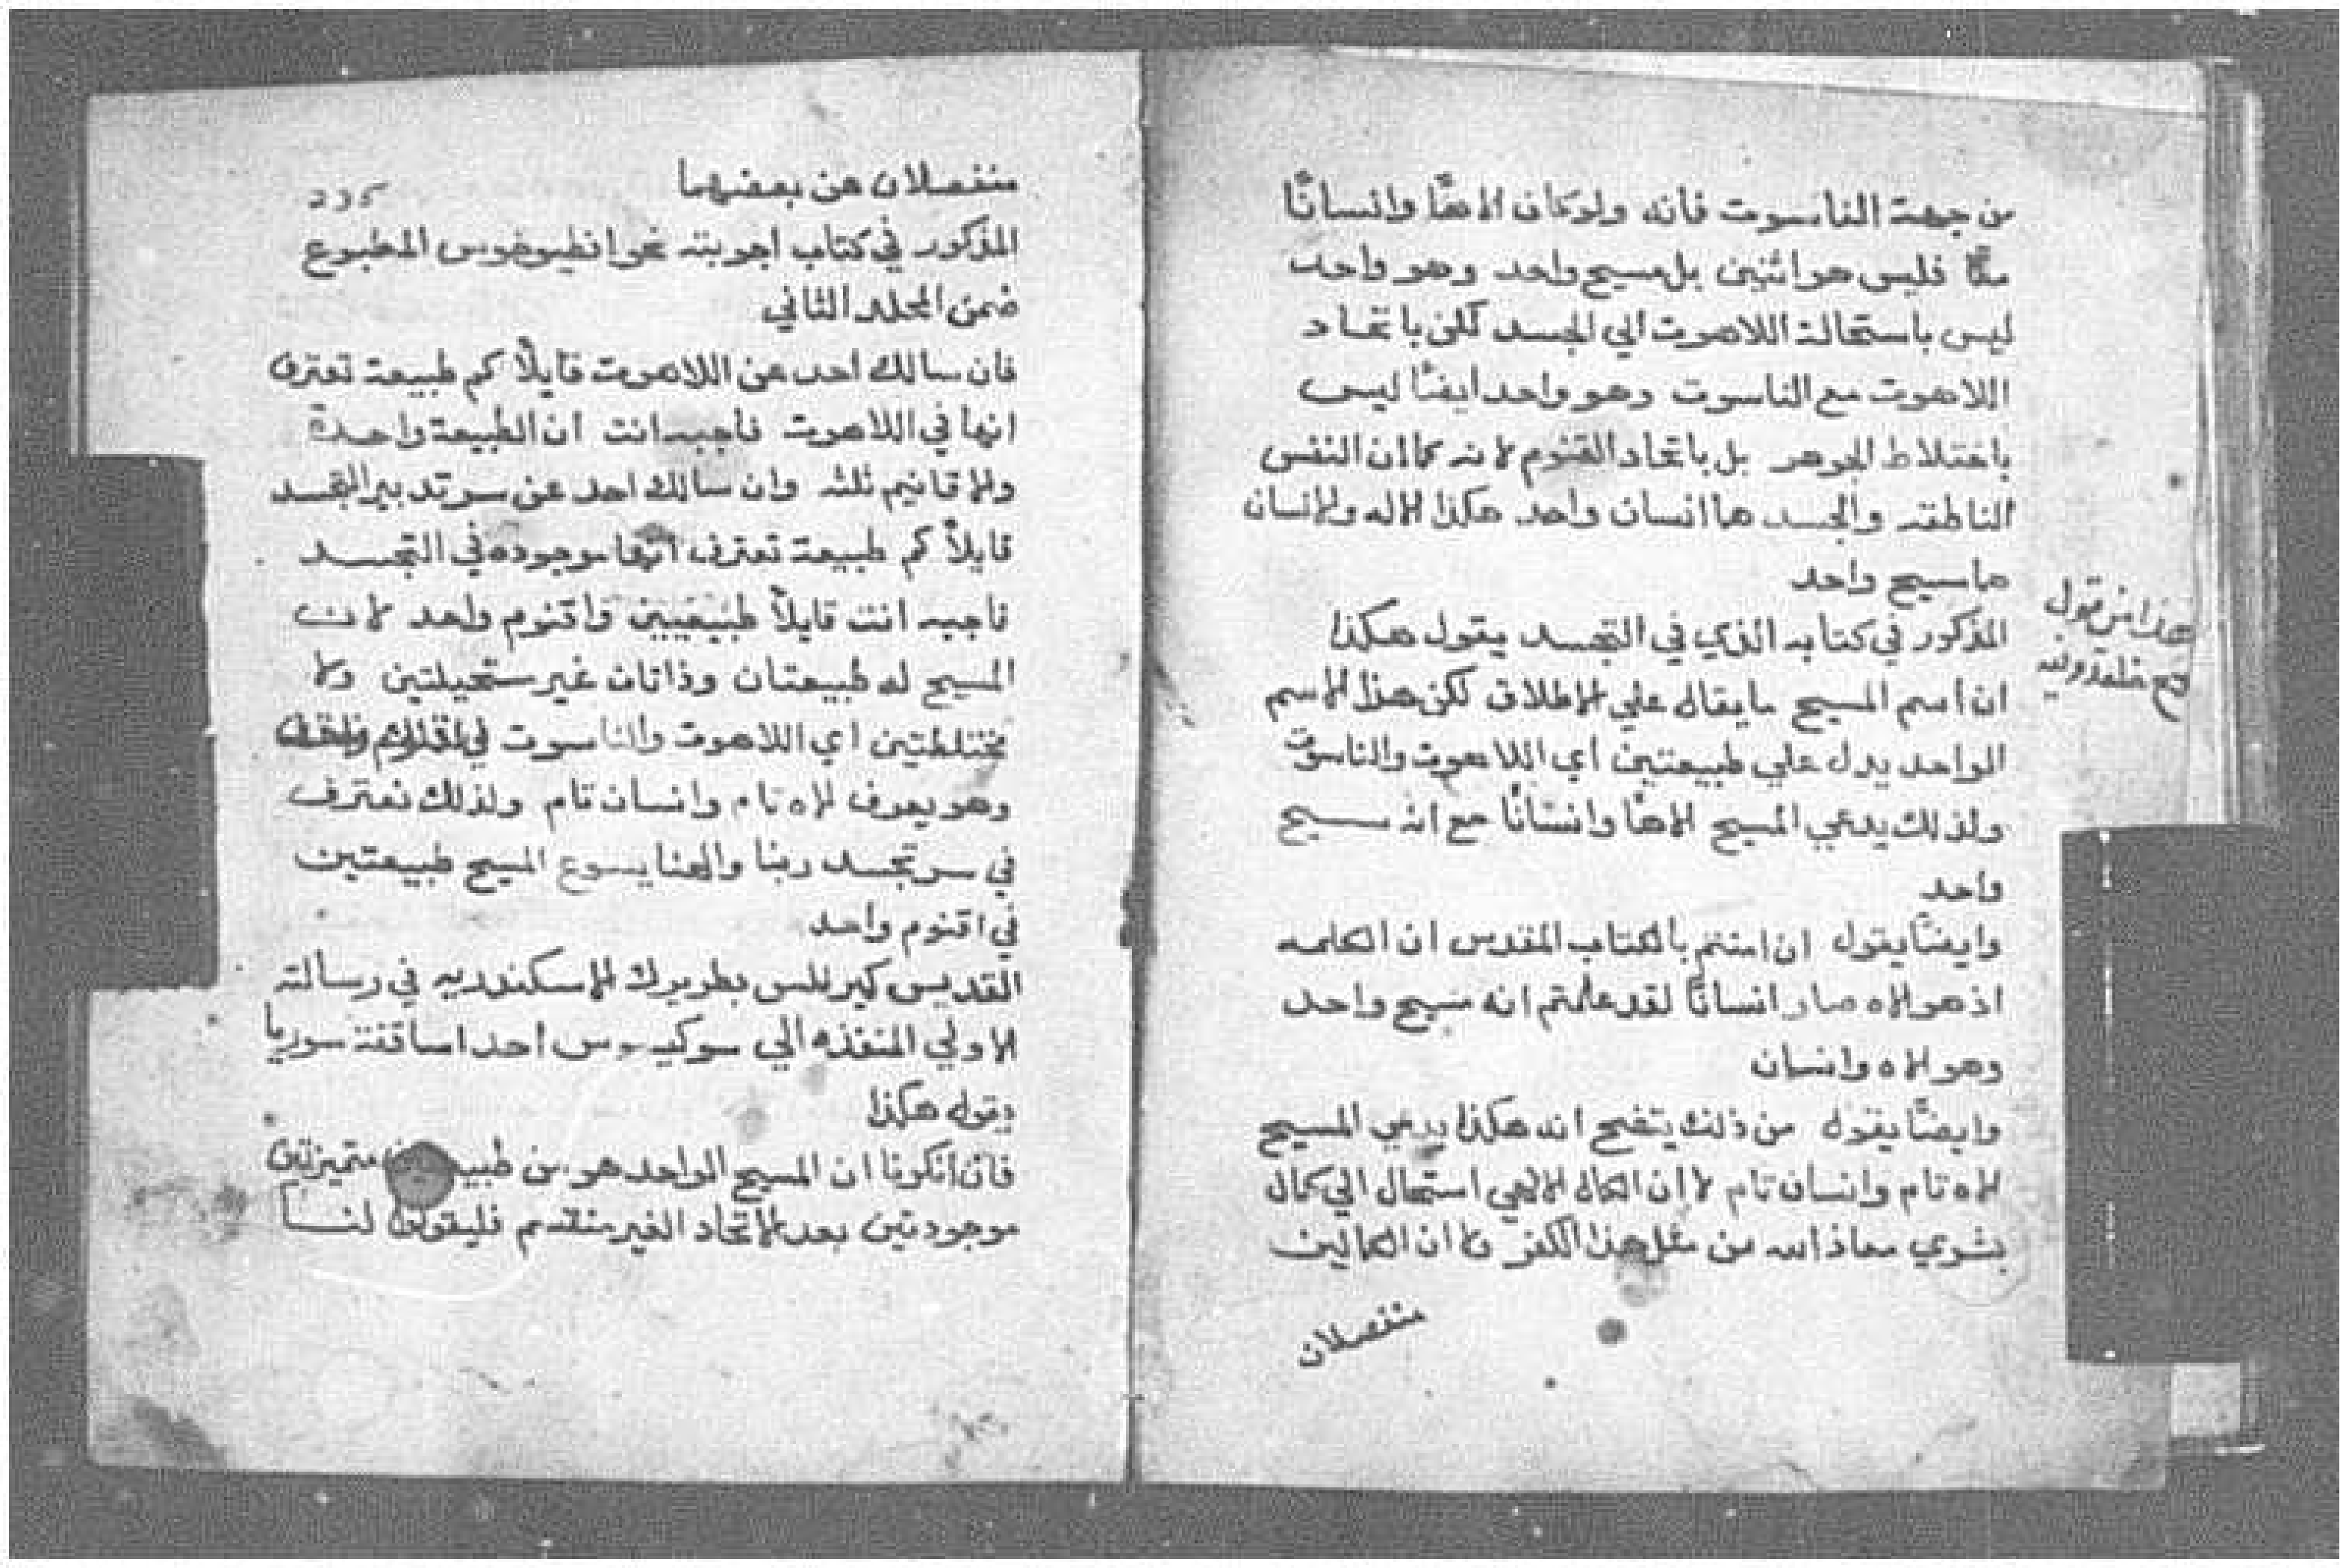 من جهة الناسوت فانه ولو كان الاهًا وانسانًا
معًا فليس هو اثنين بل مسيح واحد وهو واحد
ليس باستحالة اللاهوت الي الجسد لكن باتحاد
اللاهوت مع الناسوت وهو واحد ايضًا ليس
باختلاط الجوهر بل باتحاد القنوم لانه كما ان النفس
الناطقه والجسد هما انسان واحد هكذا الاله والانسان
هما مسيح واحد
المذكور في كتابه الذي في التجسد يقول هكذا
ان اسم المسيح ما يقال علي الاطلاق لكن هذا الاسم
الواحد يدل علي طبيعتين اي اللاهوت والناسوت
ولذلك يدعي المسيح الاهًا وانسانًا مع انه مسيح
واحد
وايضًا يقول ان امنتم بالكتاب المقدس ان الكلمه
اذ هو الاه صار انسانًا لقد علمتم انه مسيح واحد
وهو الاه وانسان
وايضًا يقول من ذلك يتضح انه هكذا يدعي المسيح
الاه تام وانسان تام لا ان الكمال الالهي استحال الي كمال
بشري معاذ الله من مثل هذا الكفر ولا ان الكمالين
منفصلان
هذا من قول
منفصلان عن بعضهما
235
المذكور في كتاب اجوبته نحو انطيوخوس المطبوع
ضمن المجلد الثاني
فان سالك احد عن اللاهوت قايلًا كم طبيعة تعترف
انها في اللاهوت فاجبه انت ان الطبيعة واحدة
والاقانيم ثلثه وان سالك احد عن سر تدبير التجسد
قايلًا كم طبيعة تعترف انها موجوده في التجسد
فاجبه انت قايلًا طبيعيين واقنوم واحد لان
المسيح له طبيعتان وذاتان غير مستحيلتين ولا
مختلطتين اي اللاهوت والناسوت
وهو يعرف الاه تام وانسان تام ولذلك نعترف
في سر تجسد ربنا والهنا يسوع المسيح طبيعتين
في اقنوم واحد
القديس كيرللس بطريرك الاسكندريه في رسالته
الاولي المنفذه الي سوكيسوس احد اساقفة سوريا
يقول هكذا
فان انكرنا ان المسيح الواحد هو من متميزتين
موجودتين بعد الاتحاد الغير منقسم فليقولن لنا